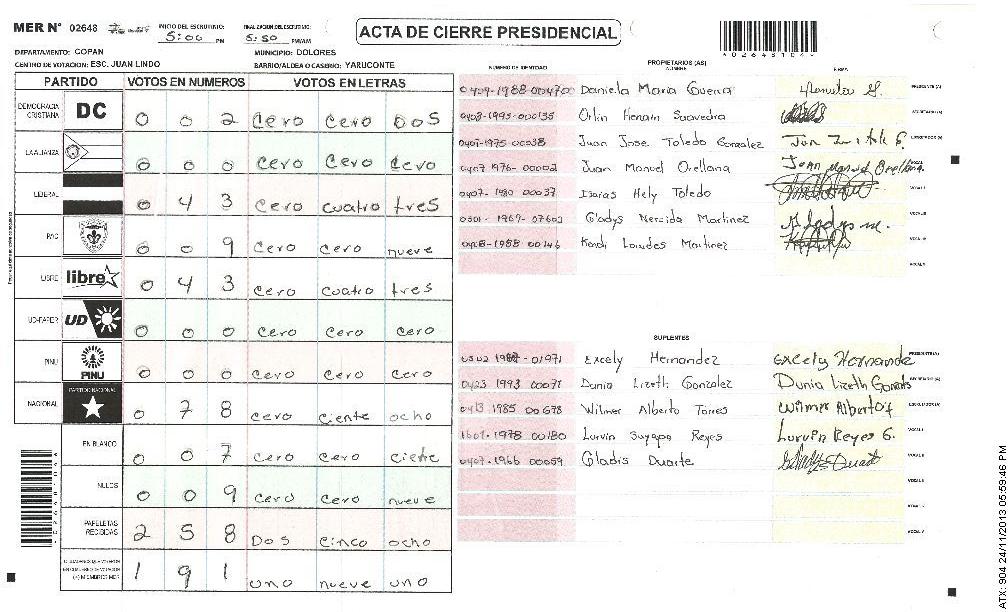 MER N° 02648 INICIO DEL ESCRUTINIO: 5:00 PM FINALIZACION DEL ESCRUTINIO: 5:50 PM/AM
ACTA DE CIERRE PRESIDENCIAL
4026481044
DEPARTAMENTO: COPAN MUNICIPIO: DOLORES
CENTRO DE VOTACION: ESC. JUAN LINDO BARRIO/ALDEA O CASERIO: YARUCONTE
PARTIDO VOTOS EN NUMEROS VOTOS EN LETRAS
DEMOCRACIA CRISTIANA DC 0 0 2 cero cero Dos
LA ALIANZA 0 0 0 cero cero cero
LIBERAL 0 4 3 cero cuatro tres
PAC 0 0 9 cero cero nueve
LIBRE libre 0 4 3 cero cuatro tres
UD-FAPER UD 0 0 0 cero cero cero
PINU PINU 0 0 0 cero cero cero
NACIONAL PARTIDO NACIONAL 0 7 8 cero ciente ocho
EN BLANCO 0 0 7 cero cero ciete
NULOS 0 0 9 cero cero nueve
PAPELETAS RECIBIDAS 2 5 8 Dos cinco ocho
CIUDADANOS QUE VOTARON EN CUADERNO DE VOTACION (+) MIEMBROS MER 1 9 1 uno nueve uno
PROPIETARIOS (AS)
NUMERO DE IDENTIDAD NOMBRE FIRMA
Daniela Maria Guerra PRESIDENTE (A)
0408-1993-000135 Orlin Henain Saavedra SECRETARIO (A)
0407-1975 00038 Juan Jose Toledo Gonzalez ESCRUTADOR (A)
0407 1976- 00002 Juan Manuel Orellana Joan Manuel Orellana VOCAL I
0407- 1980 00037 Isaias Hely Toledo VOCAL II
0501- 1967- 07603 Gladys Nereida Martinez Gladys m. VOCAL III
0408-1988 00146 Kendi Lourdes Martinez VOCAL IV
VOCAL V
SUPLENTES
Excely Hernandez Excely Hernande PRESIDENTE (A)
0423 1993 00071 Dunia Lizeth Gonzalez Dunia Lizeth Gonzales SECRETARIO (A)
0413 1985 00678 Wilmer Alberto Torres Wilmer Alberto T ESCRUTADOR (A)
1601-1978 00180 Lurvin Suyapa Reyes Lurvin Reyes G. VOCAL I
0407-1966 00059 Gladis Duarte VOCAL II
VOCAL III
VOCAL IV
VOCAL V
ATX: 904 24/11/2013 05:59:46 PM